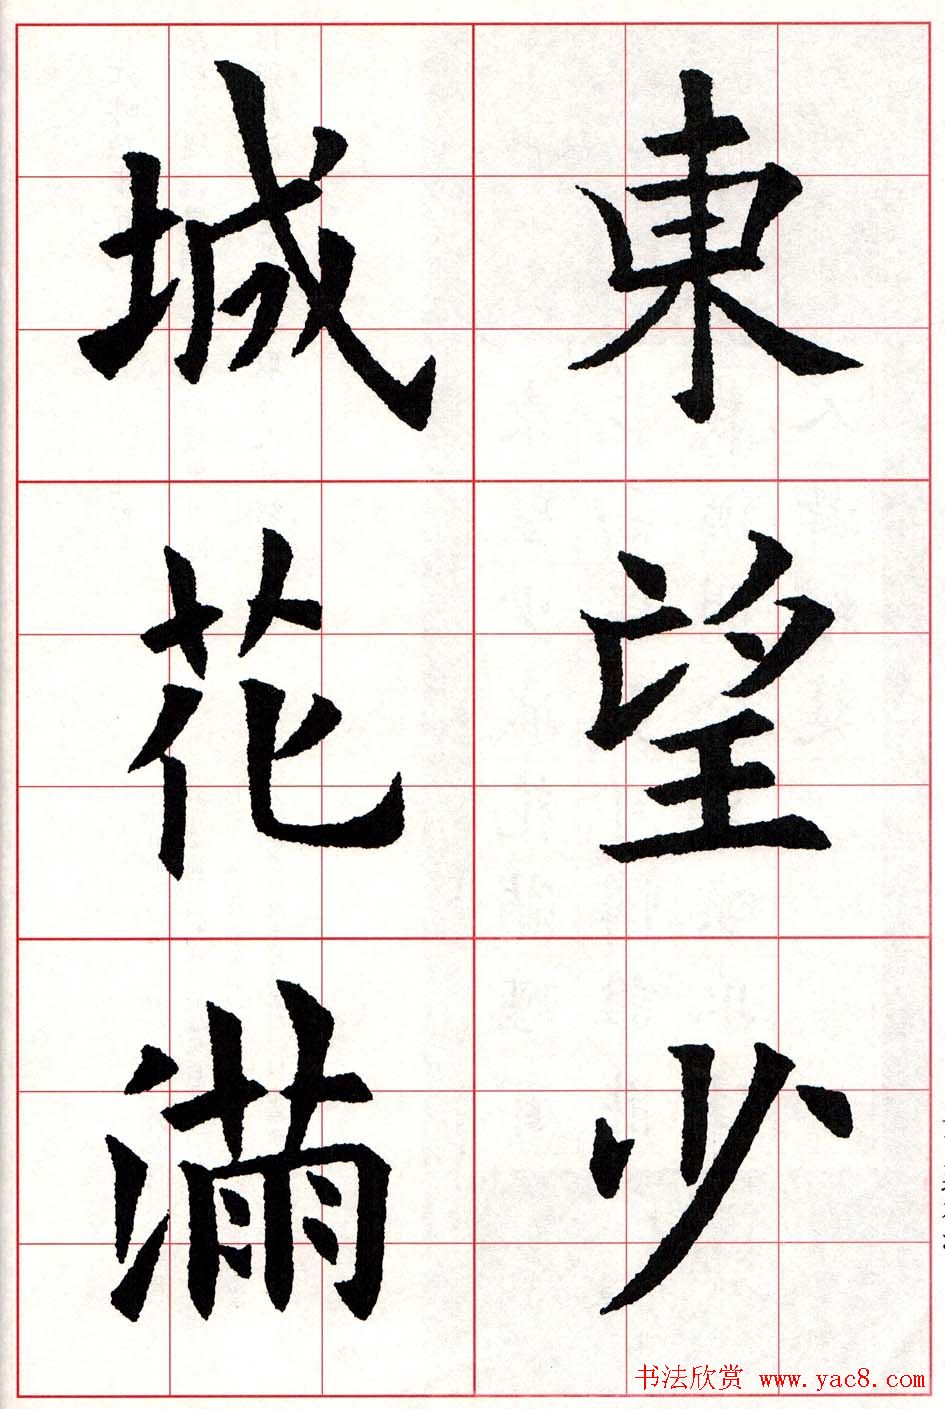 東望少
城花滿
书法欣赏 www.yac8.com